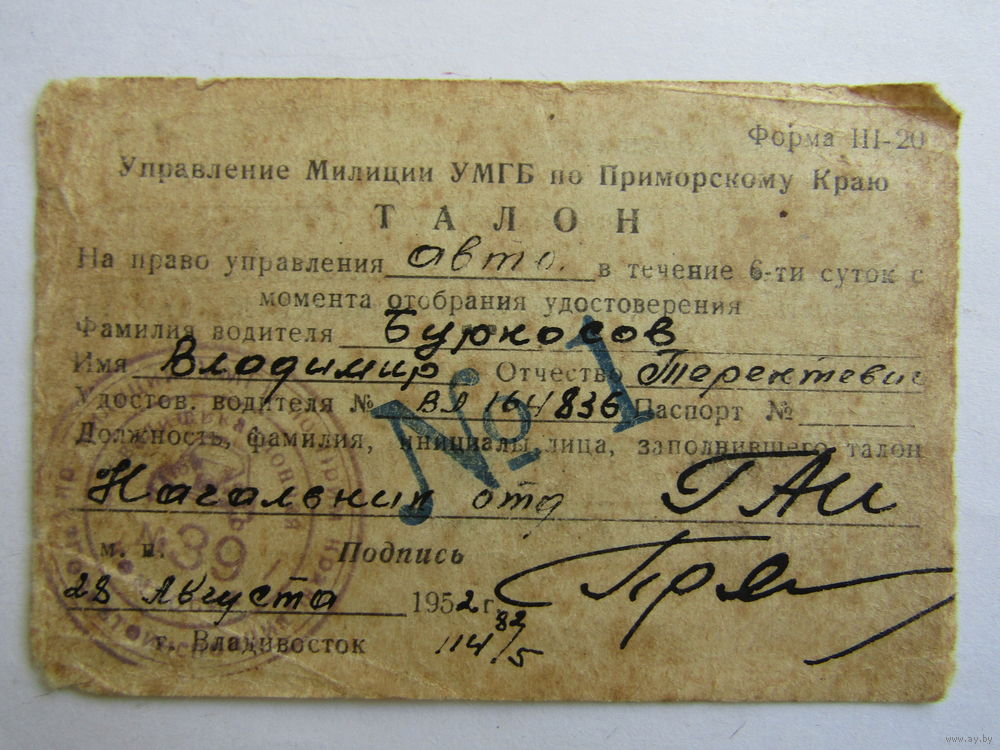 Форма III-20
Управление Милиции УМГБ по Приморскому Краю
ТАЛОН
На право управления авто. в течение 6-ти суток с
момента отобрания удостоверения
Фамилия водителя Бурносов
Имя Владимир Отчество Терентевич
Удостов. водителя № ВЛ 164836 Паспорт №
№ 1
Должность, фамилия, инициалы лица, заполнившего талон
Начальник отд ГАИ
м. п. Подпись
28 Августа 1952 г.
г. Владивосток
№ 39
www.ay.by